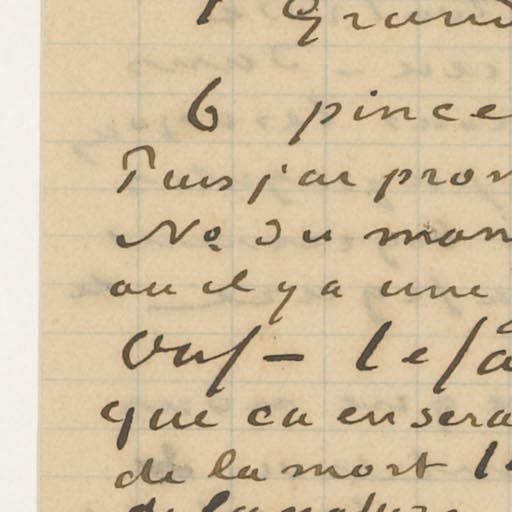 1 Grand
6 pince
Puis j'ai prom
No du mon
ou il y a une
Ouf - le
que ca en sera
de la mort
de la nature